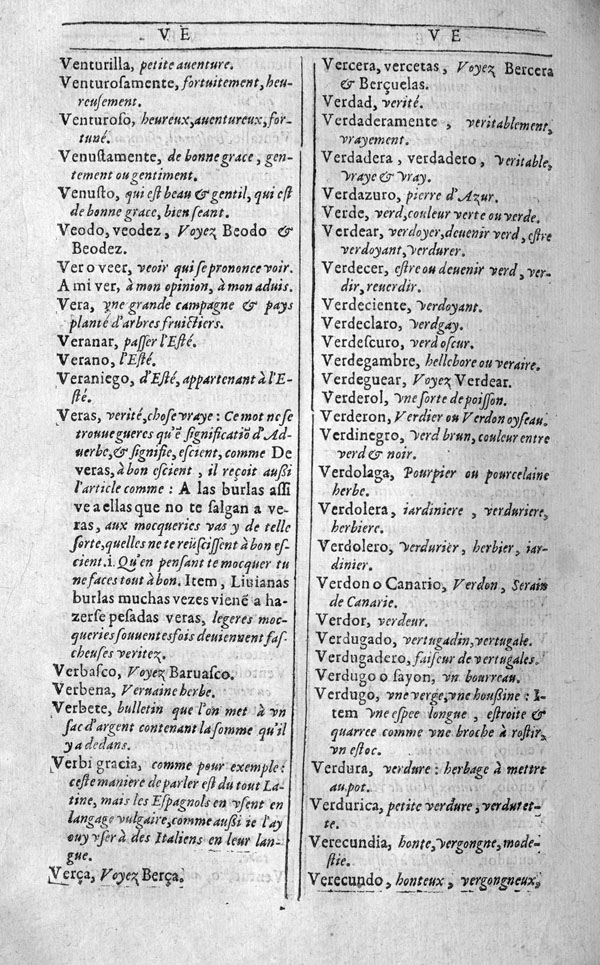 V E
V E
Venturilla, petite auenture.
Venturosamente, fortuitement, heu-
reusement.
Venturoso, heureux, auentureux, for-
tuné.
Venustamente, de bonne grace, gen-
tement ou gentiment.
Venusto, qui est beau & gentil, qui est
de bonne grace, bien seant.
Veodo, veodez, Voyez Beodo &
Beodez.
Ver o veer, veoir qui se prononce voir.
A mi ver, à mon opinion, à mon aduis.
Vera, vne grande campagne & pays
planté d'arbres fruictiers.
Veranar, passer l'Esté.
Verano, l'Esté.
Veraniego, d'Esté, appartenant à l'E-
sté.
Veras, verité, chose vraye : Ce mot ne se
trouue gueres qu'ē significatiō d'Ad-
uerbe, & signifie, escient, comme De
veras, à bon escient, il reçoit aussi
l'article comme : A las burlas assi
ve a ellas que no te salgan a ve-
ras, aux mocqueries vas y de telle
sorte, quelles ne te reüscissent à bon es-
cient. i. Qu'en pensant te mocquer tu
ne faces tout à bon. Item, Liuianas
burlas muchas vezes vienē a ha-
zerse pesadas veras, legeres moc-
queries souuentesfois deuiennent fas-
cheuses veritez.
Verbasco, Voyez Baruasco.
Verbena, Veruaine herbe.
Verbete, bulletin que l'on met à vn
sac d'argent contenant la somme qu'il
y a dedans.
Verbi gracia, comme pour exemple :
ceste maniere de parler est du tout La-
tine, mais les Espagnols en vsent en
langage vulgaire, comme aussi ie l'ay
ouy vser à des Italiens en leur lan-
gue.
Verça, Voyez Berça.
Vercera, vercetas, Voyez Bercera
& Berçuelas.
Verdad, verité.
Verdaderamente, veritablement,
vrayement.
Verdadera, verdadero, veritable,
vraye & vray.
Verdazuro, pierre d'Azur.
Verde, verd, couleur verte ou verde.
Verdear, verdoyer, deuenir verd, estre
verdoyant, verdurer.
Verdecer, estre ou deuenir verd, ver-
dir, reuerdir.
Verdeciente, verdoyant.
Verdeclaro, verdgay.
Verdescuro, verd oscur.
Verdegambre, hellebore ou veraire.
Verdeguear, Voyez Verdear.
Verderol, vne sorte de poisson.
Verderon, Verdier ou Verdon oyseau.
Verdinegro, verd brun, couleur entre
verd & noir.
Verdolaga, Pourpier ou pourcelaine
herbe.
Verdolera, iardiniere, verduriere,
herbiere.
Verdolero, verdurier, herbier, iar-
dinier.
Verdon o Canario, Verdon, Serain
de Canarie.
Verdor, verdeur.
Verdugado, vertugadin, vertugale.
Verdugadero, faiseur de vertugales.
Verdugo o sayon, vn bourreau.
Verdugo, vne verge, vne houßine : I-
tem vne espee longue, estroite &
quarree comme vne broche à rostir,
vn estoc.
Verdura, verdure : herbage à mettre
au pot.
Verdurica, petite verdure, verdutet-
te.
Verecundia, honte, vergongne, mode-
stie.
Verecundo, honteux, vergongneux,